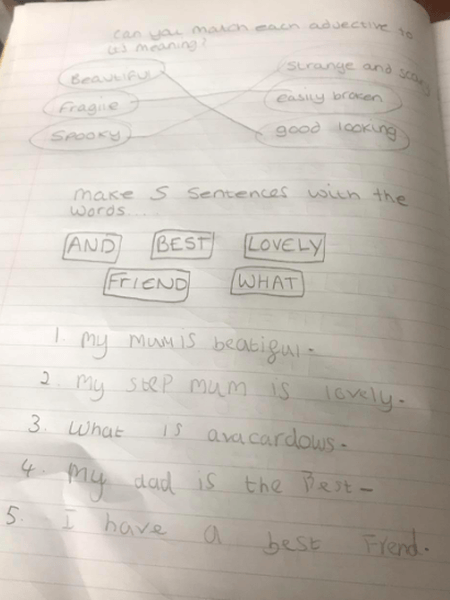 can you match each adjective to
its meaning?
Beautiful strange and scary
Fragile easily broken
SPOOKY good looking
make 5 sentences with the
words....
AND BEST LOVELY
FRIEND WHAT
1. My mum is beatigul.
2. my step mum is lovely.
3. What is avacardows.
4. My dad is the Best-
5. I have a best Frend.